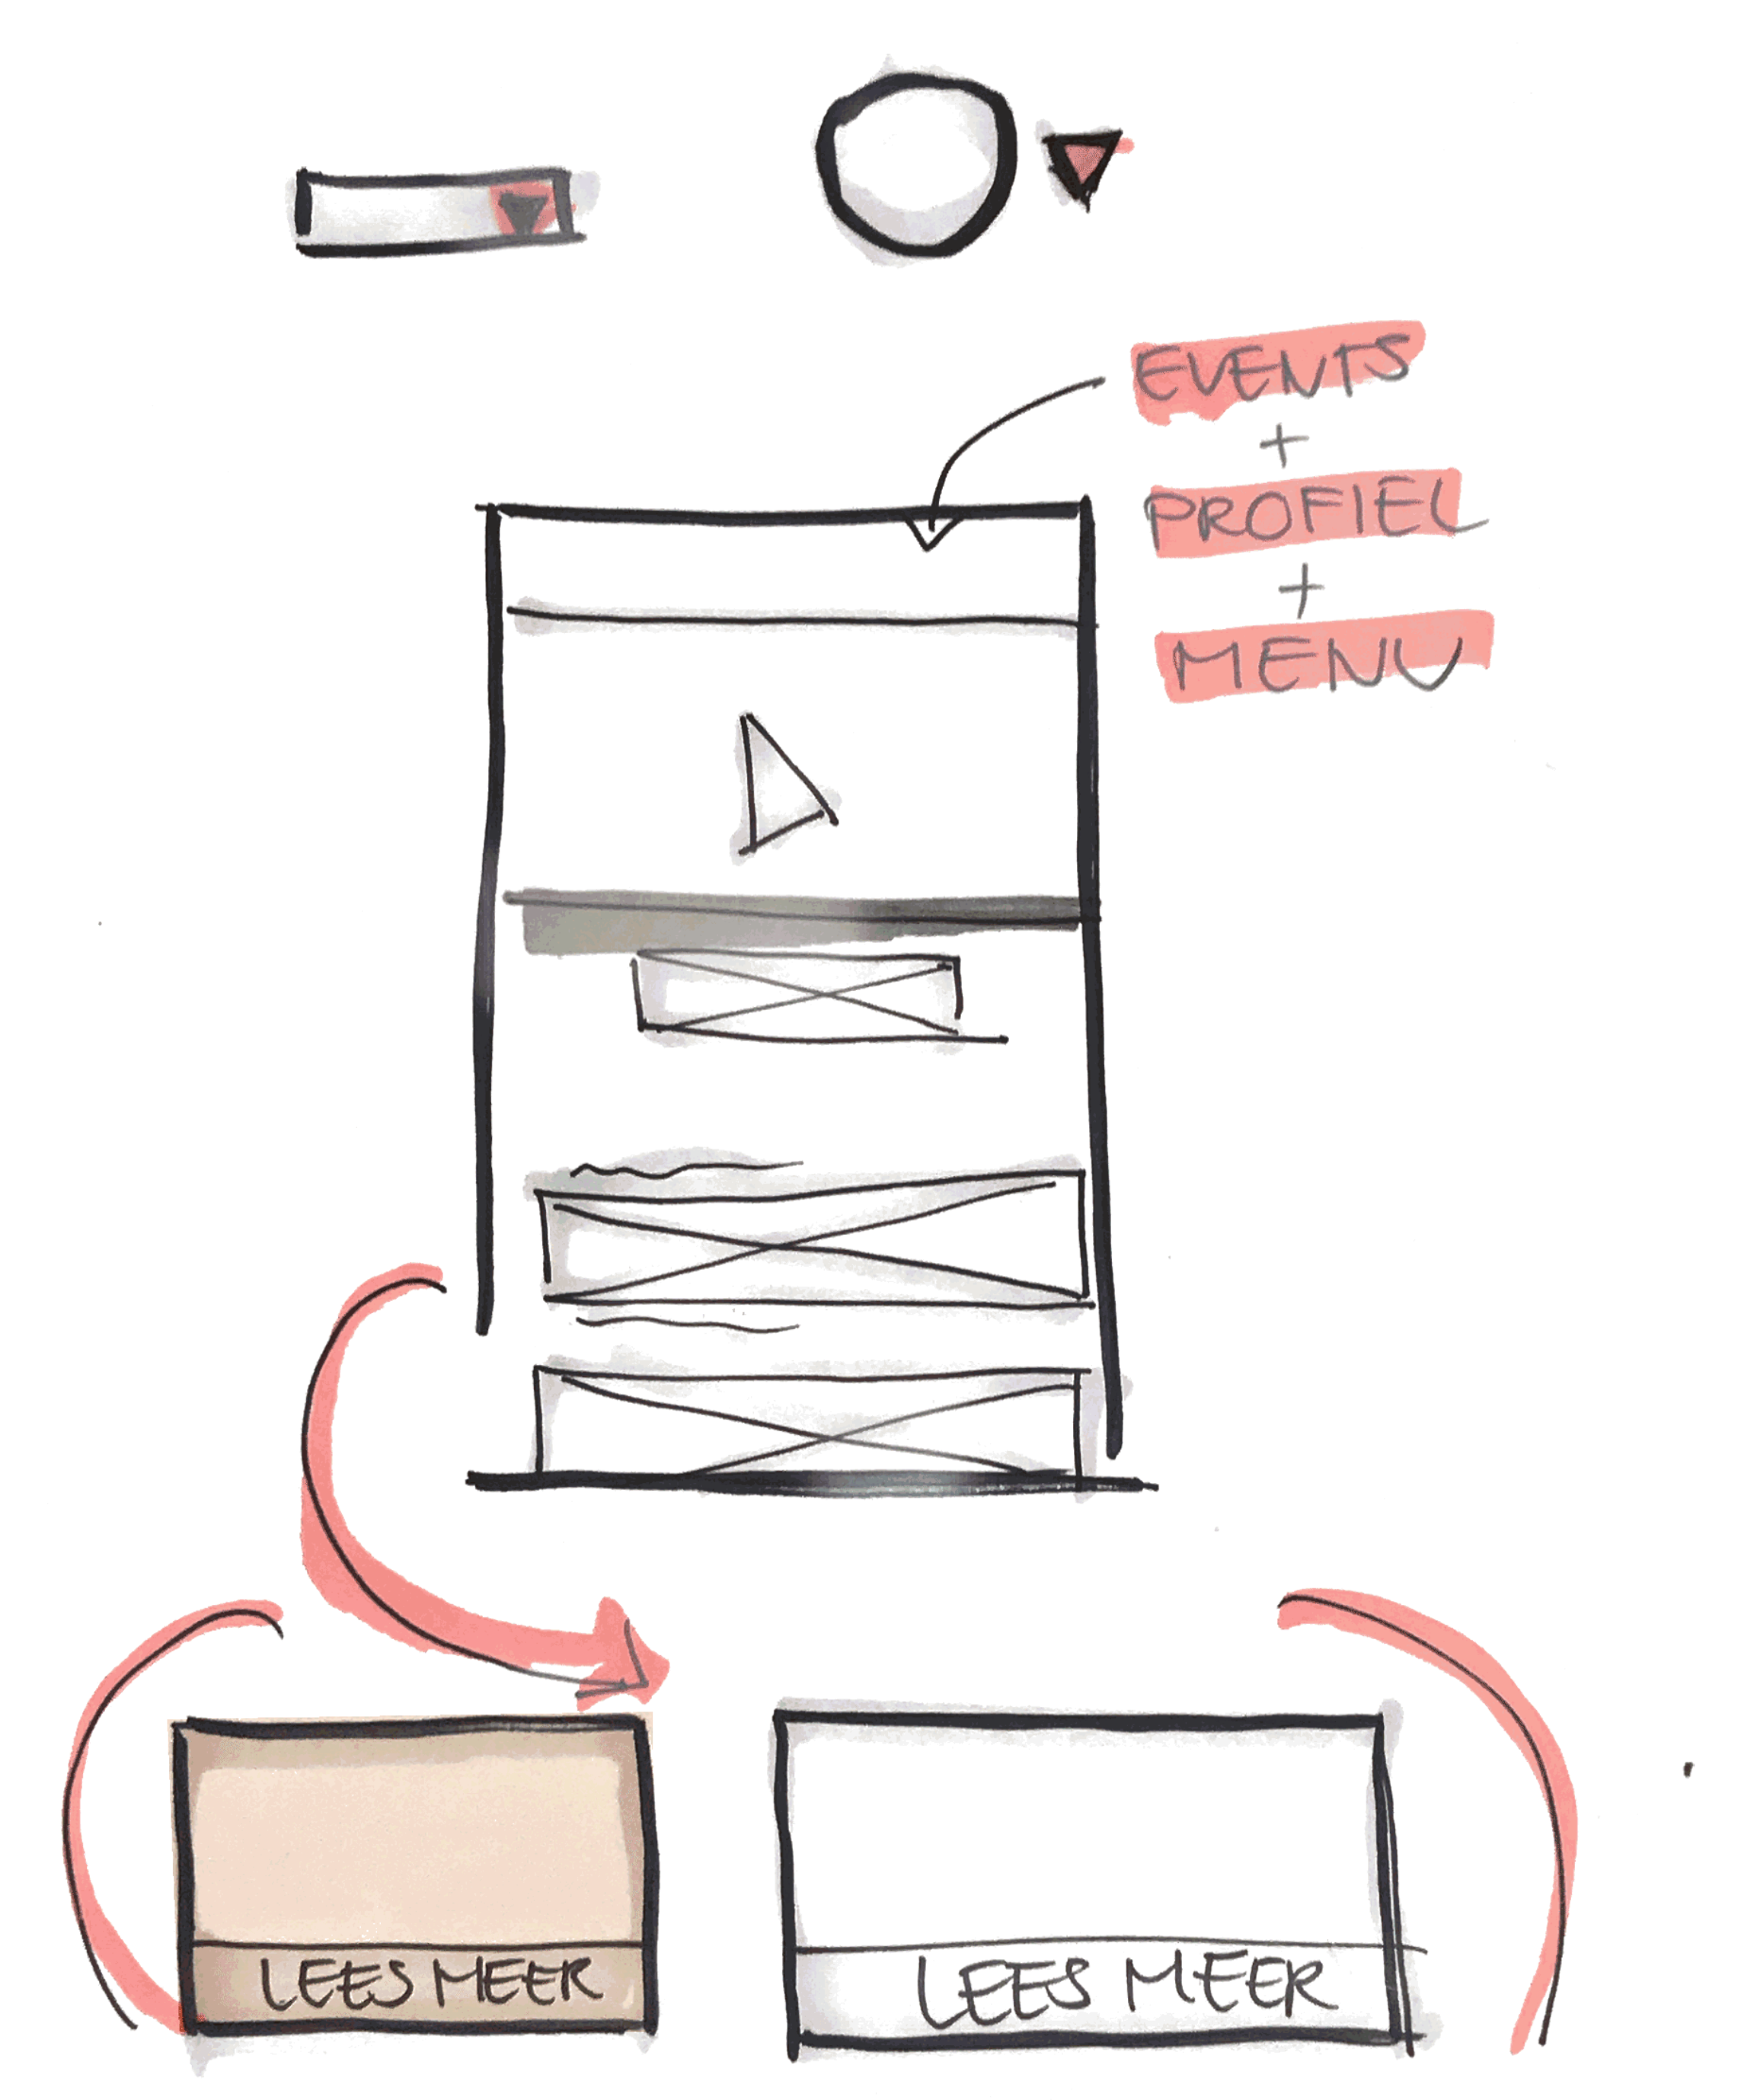 EVENTS
+
PROFIEL
+
MENU
LEES MEER
LEES MEER